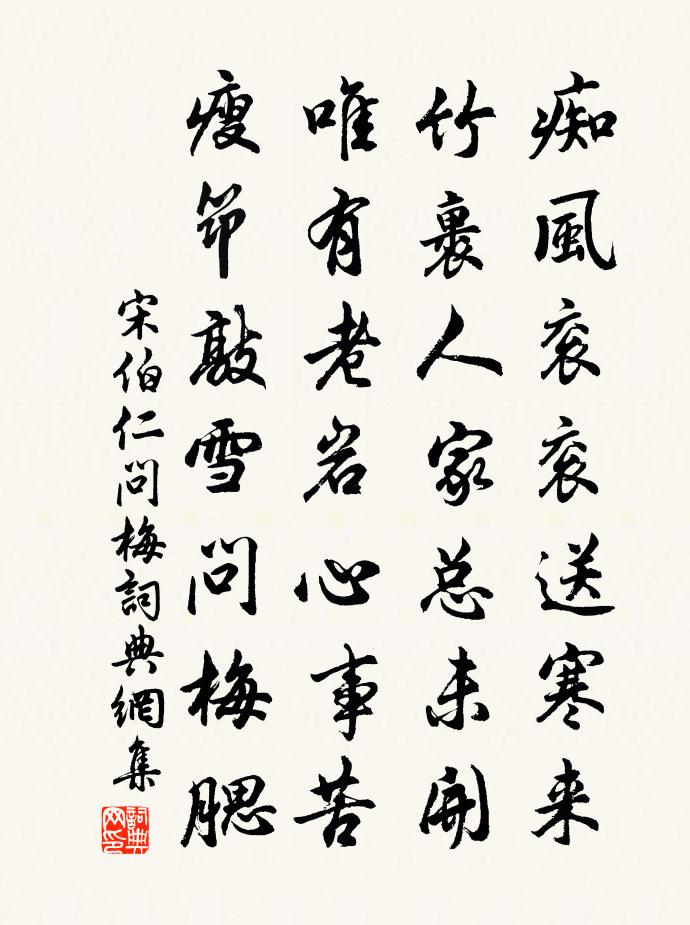 痴風衮衮送寒来
竹裏人家总未開
唯有老岩心事苦
瘦筇敲雪問梅腮
宋伯仁問梅詞典網集
詞典网印